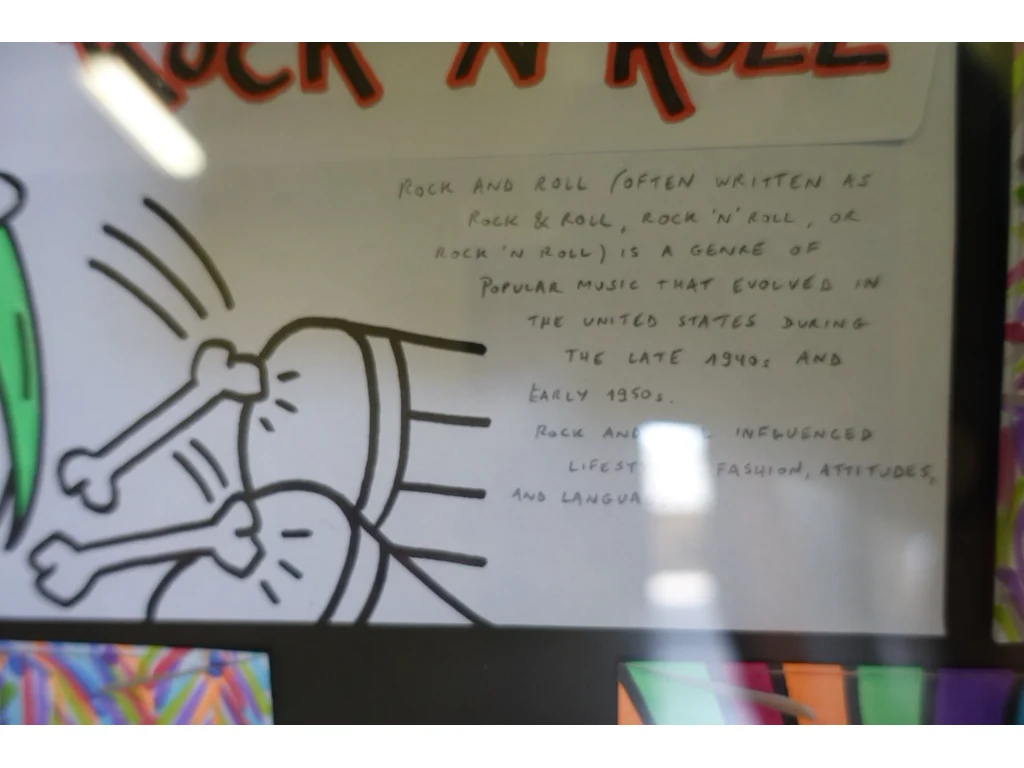 ROCK 'N ROLL
ROCK AND ROLL (OFTEN WRITTEN AS
ROCK & ROLL, ROCK 'N' ROLL, OR
ROCK 'N ROLL) IS A GENRE OF
POPULAR MUSIC THAT EVOLVED IN
THE UNITED STATES DURING
THE LATE 1940s AND
EARLY 1950s.
ROCK AND INFLUENCED
FASHION, ATTITUDES,
AND